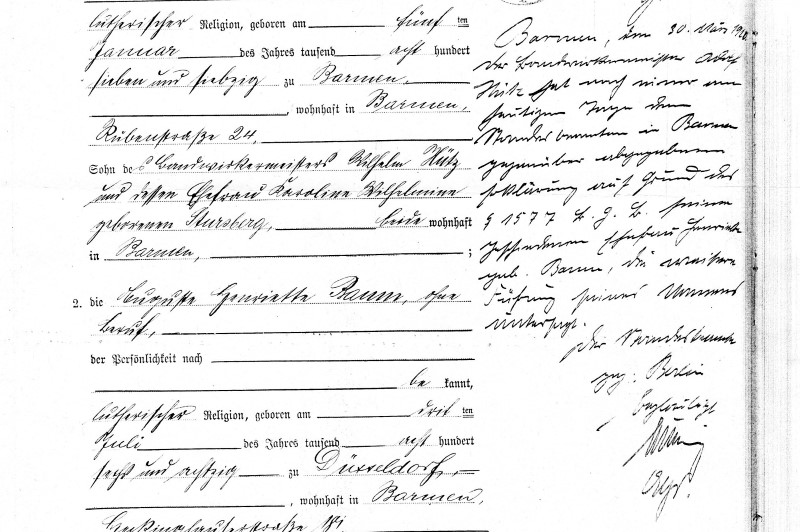 lutherischer Religion, geboren am fünf ten
Januar des Jahres tausend acht hundert
sieben und siebzig zu Barmen,
, wohnhaft in Barmen,
Rübenstraße 24,
Sohn des Bandwirkermeisters Wilhelm Hütz
und dessen Ehefrau Karoline Wilhelmine
geborenen Stursberg, beide wohnhaft
in Barmen, ;
2. die Auguste Henriette Baum, ohne
Beruf,
der Persönlichkeit nach
be kannt,
lutherischer Religion, geboren am drit ten
Juli des Jahres tausend acht hundert
sechs und achtzig zu Düsseldorf,
, wohnhaft in Barmen,
Barmen, den 30. März
Der Bandwirkermeister Adolf
Hütz hat nach einer am
heutigen Tage dem
Standesbeamten in Barmen
gegenüber abgegebenen
Erklärung auf Grund des
§ 1577 B. G. B. seiner
geschiedenen Ehefrau Henriette
geb. Baum, die weitere
Führung seines Namens
untersagt.
Der Standesbeamte
gez. Berlin
Beglaubigt